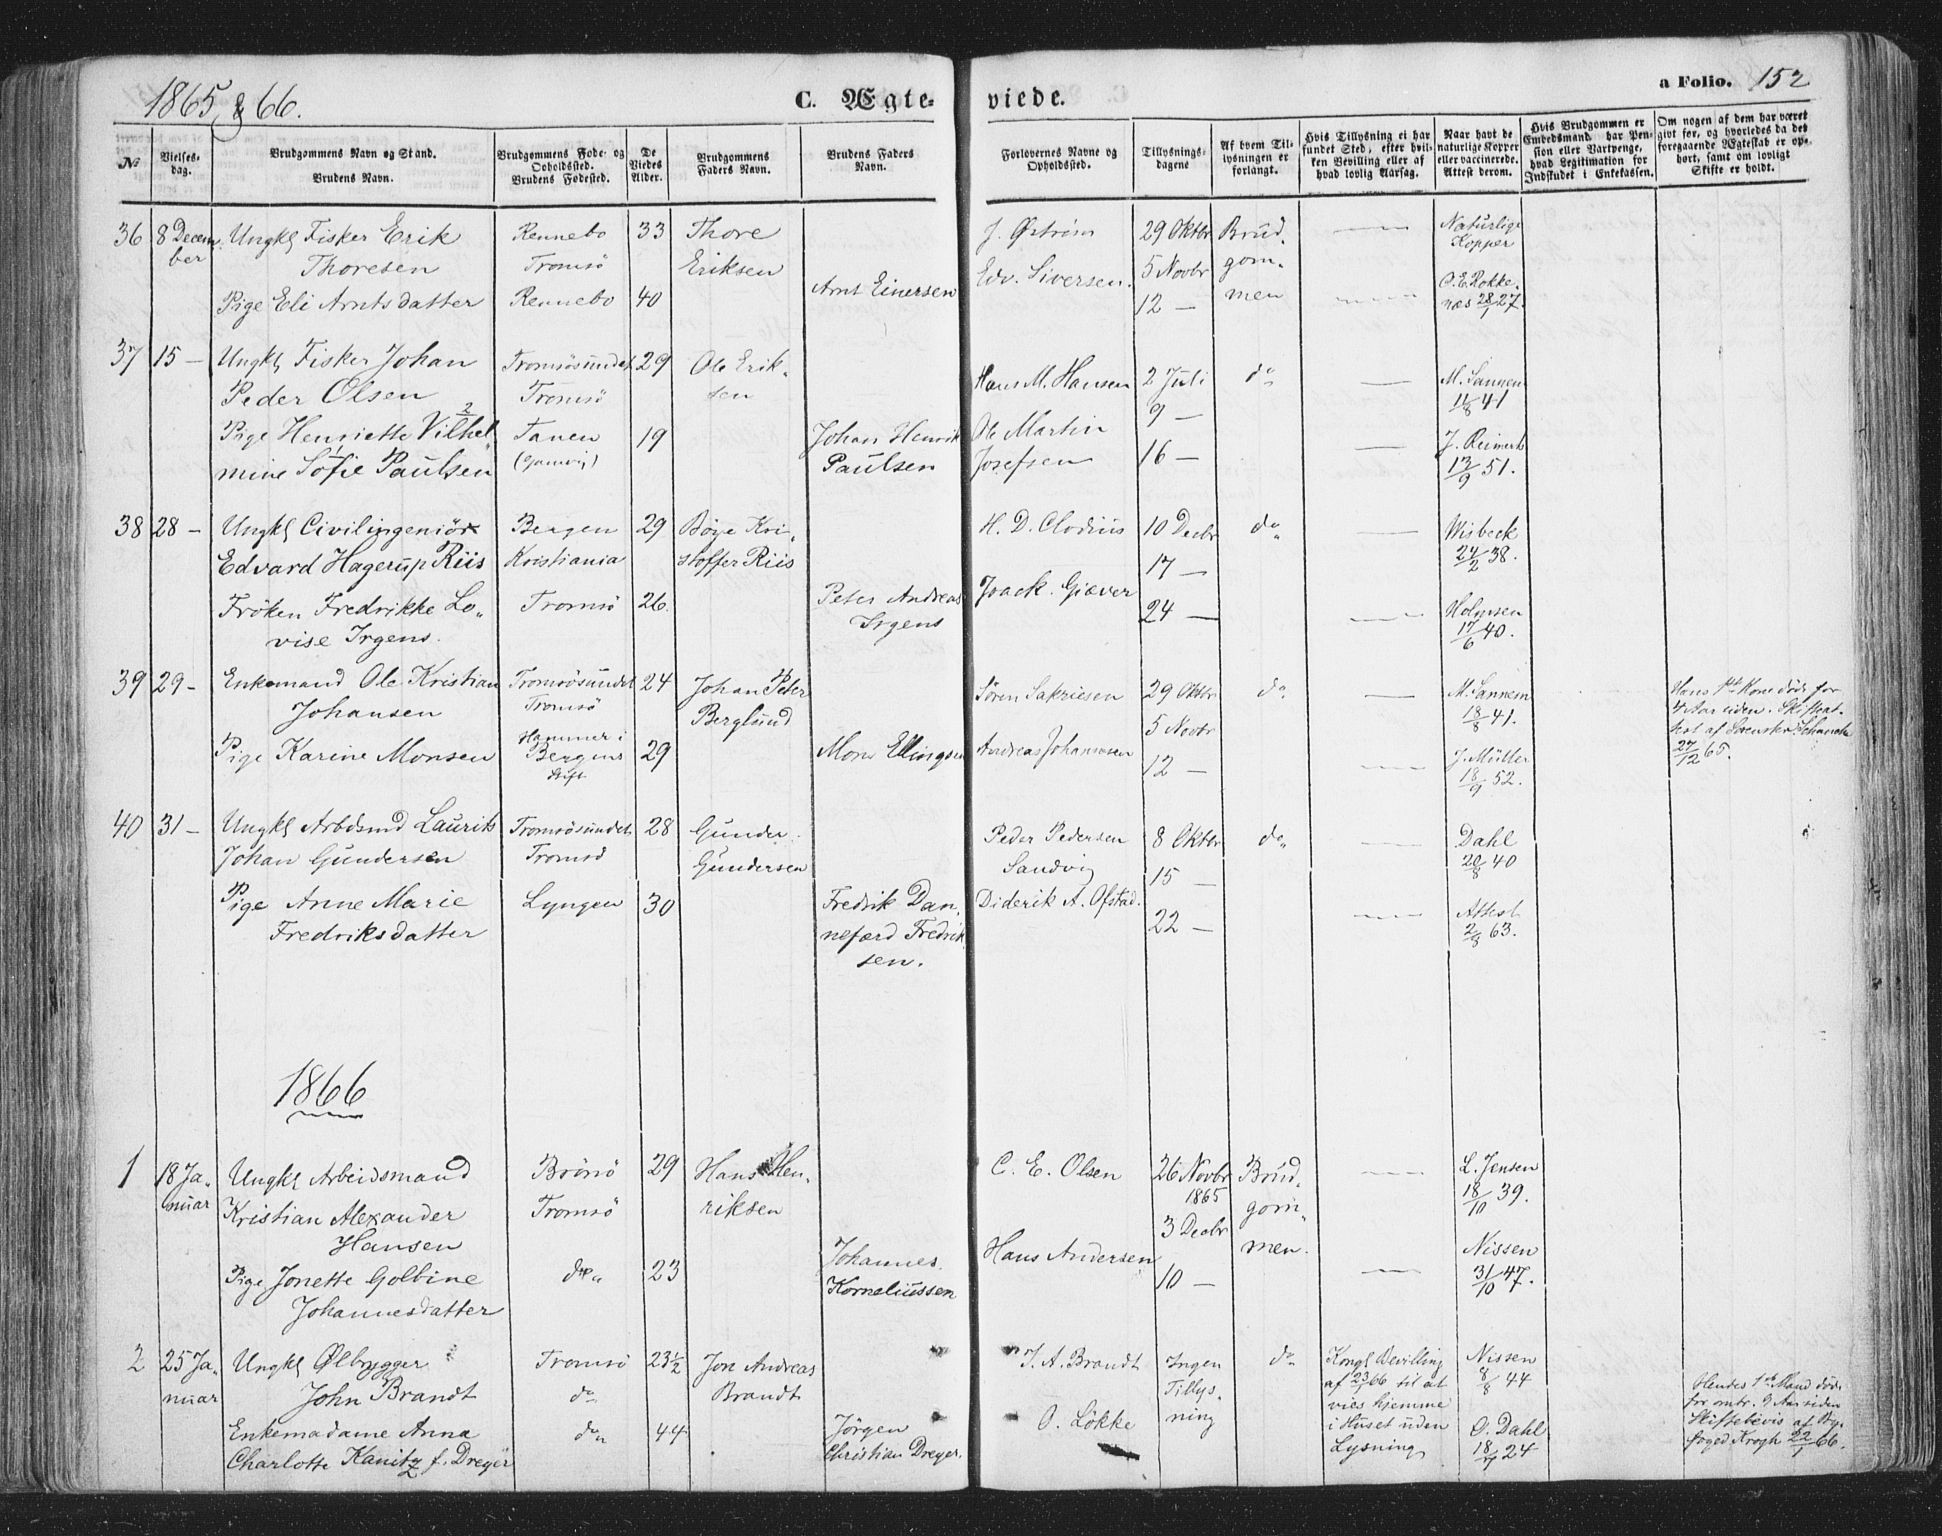 1865 & 66.
C. Ægteviede.
a Folio. 152
No
Vielsesdag.
Brudgommens Navn og Stand.
Brudens Navn.
Brudgommens Føde- og Opholdssted.
Brudens Fødested.
De Viedes Alder.
Brudgommens Faders Navn.
Brudens Faders Navn.
Forlovernes Navne og Opholdssted.
Tillysningsdagene
Af hvem Tillysningen er forlangt.
Hvis Tillysning ei har fundet Sted, efter hvilken Bevilling eller af hvad lovlig Aarsag.
Naar havt de naturlige Kopper eller vaccinerede. Attest derom.
Hvis Brudgommen er Embedsmand har Pension eller Vartpenge, hvad Legitimation for Indskudet i Enkekassen.
Om nogen af dem har været gift før, og hvorledes da det foregaaende Ægteskab er ophørt, samt om lovligt Skifte er holdt.
36 8 December Ungkl Fisker Erik Rennebo 33 Thore J. Østrøm 29 Oktbr Brud- Naturlige
Thoresen Tromsö Eriksen Edv. Siversen. 5 Novbr gom- Kopper
Pige Eli Arntsdatter Rennebo 40 Arnt Einersen 12 — men O. E. Rokkenæs 28/1 27.
37 15 — Ungkl Fisker Johan Tromsösundet 29 Ole Erik- Hans M. Hansen 2 Juli do M. Sannem
Peder Olsen Tromsö sen 9 — 11/8 41
Pige Henriette Vilhel- Tanen 19 Johan Henrik Ole Martin J. Reimert
mine Sofie Paulsen (Gamvig) Paulsen Josefsen 16 — 12/9 51.
38 28 — Ungkl Civilingeniör Bergen 29 Böye Kri- H. D. Clodius 10 Decbr do Wisbeck
Edvard Hagerup Riis Kristiania stoffer Riis 17 — 24/2 38.
Fröken Fredrikke Lo- Tromsö 26. Peter Andreas Joack. Giæver 24 — Holmsen
vise Irgens. Irgens 17/6 40.
39 29 — Enkemand Ole Kristian Tromsösundet 24 Johan Peter Sören Sakriesen 29 Oktbr do M. Sannem Hans 1st Kone döde for
Johansen Tromsö Berglund 5 Novbr 18/8 41. 4 Aar siden. Skifteat-
Pige Karine Monsen Hammer i Bergens stift 29 Mons Ellingsen Andreas Johannesen 12 — J. Müller test af
18/9 52. 27/12 65.
40 31 — Ungkl Arbdsmd Laurits Tromsösundet 28 Gunder Peder Pedersen 8 Oktbr do Dahl
Johan Gundersen Tromsö Gundersen Sandvig 15 — 20/8 40
Pige Anne Marie Lyngen 30 Fredrik Dan- Diderik A. Ofstad. 22 — Attest
Fredriksdatter nefærd Fredrik- 2/8 63.
sen.
1866
1 18 Ja- Ungkl Arbeidsmand Brönö 29 Hans Hen- C. E. Olsen 26 Novbr Brud- L. Jensen
nuar Kristian Alexander Tromsö riksen 1865 gom- 18/10 39.
Hansen 3 Decbr men.
Pige Jonette Golbine do 23 Johannes Hans Andersen 10 — Nissen
Johannesdatter Korneliussen 31/10 47.
2 25 Ja- Ungkl Ølbrygger Tromsö 23½ Jon Andreas J. A. Brandt Ingen do Kongl Bevilling Nissen Hendes 1ste Mand döde
nuar John Brandt do Brandt Tillys- af 23/1 66 til at 8/8 44 for omtr. 9 Aar siden
Enkemadame Anna do 44 Jörgen O. Lökke ning vies hjemme O. Dahl Skiftebevis af By-
Charlotte Kanitz f. Dreyer Christian Dreyer. i Huset uden Lysning 18/7 24 foged Krogh 22/1 66.